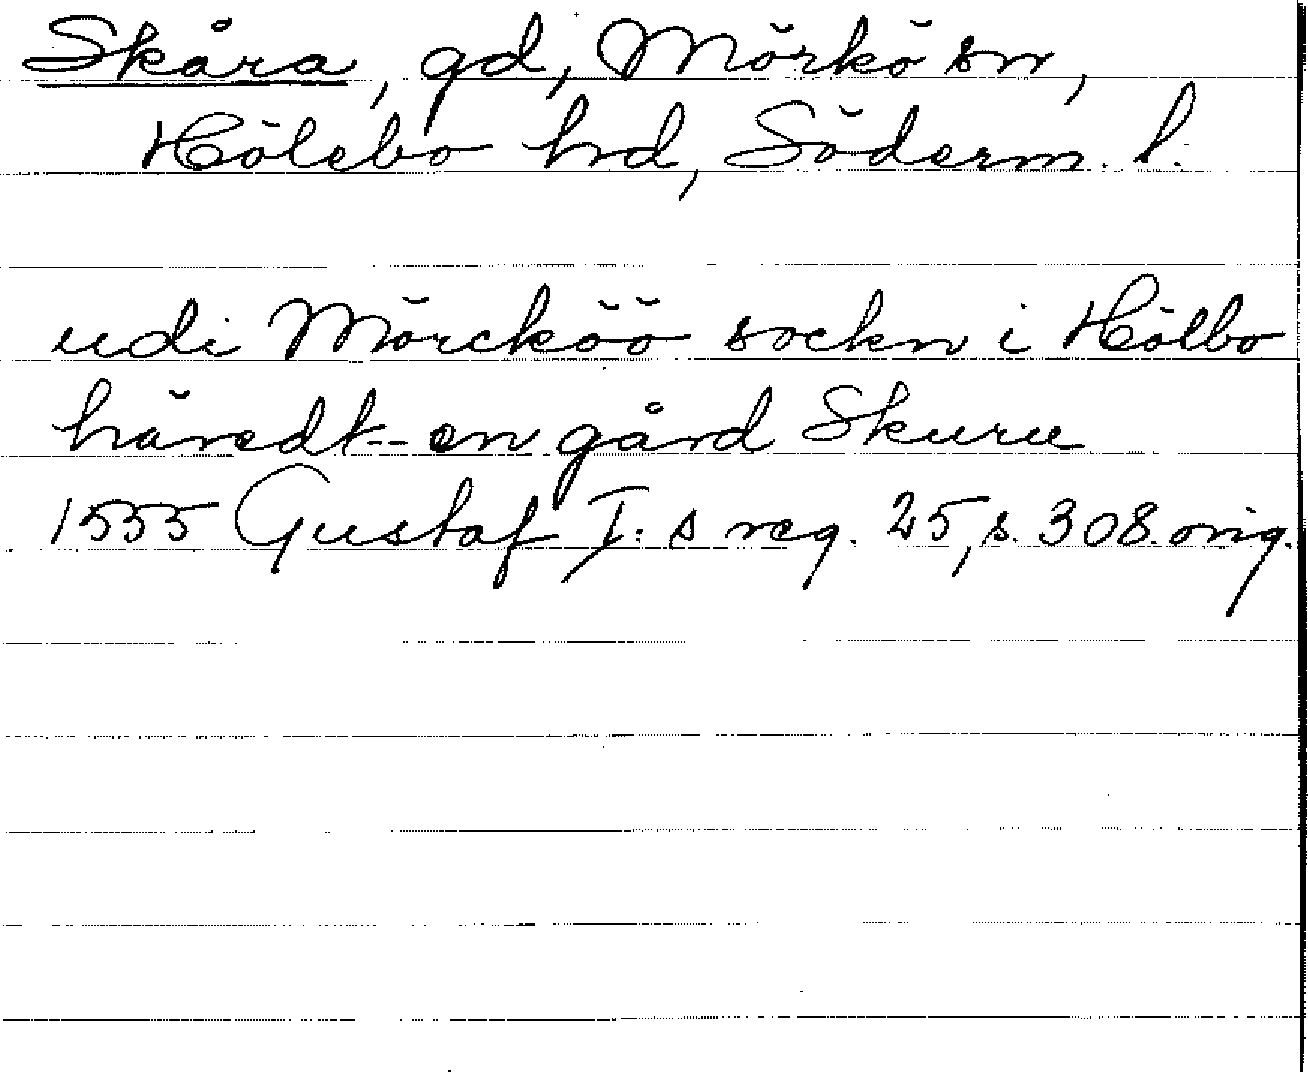 Skåra, gd, Mörkö sn,
Hölebo hd, Söderm. l.
udi Mörcköö sockn i Hölbo
häredt -- en gård Skuru
1555 Gustaf I:s reg. 25, s. 308. orig.